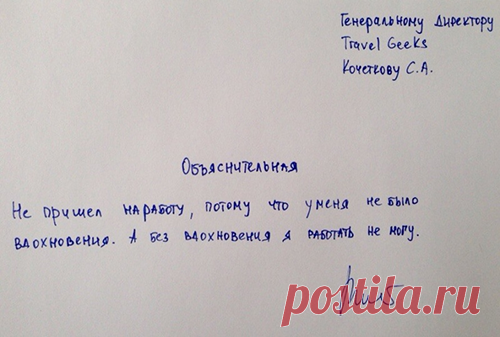 Генеральному директору
Travel Geeks
Кочеткову С.А.
Объяснительная
Не пришел на работу, потому что у меня не было
вдохновения. А без вдохновения я работать не могу.
postila.ru